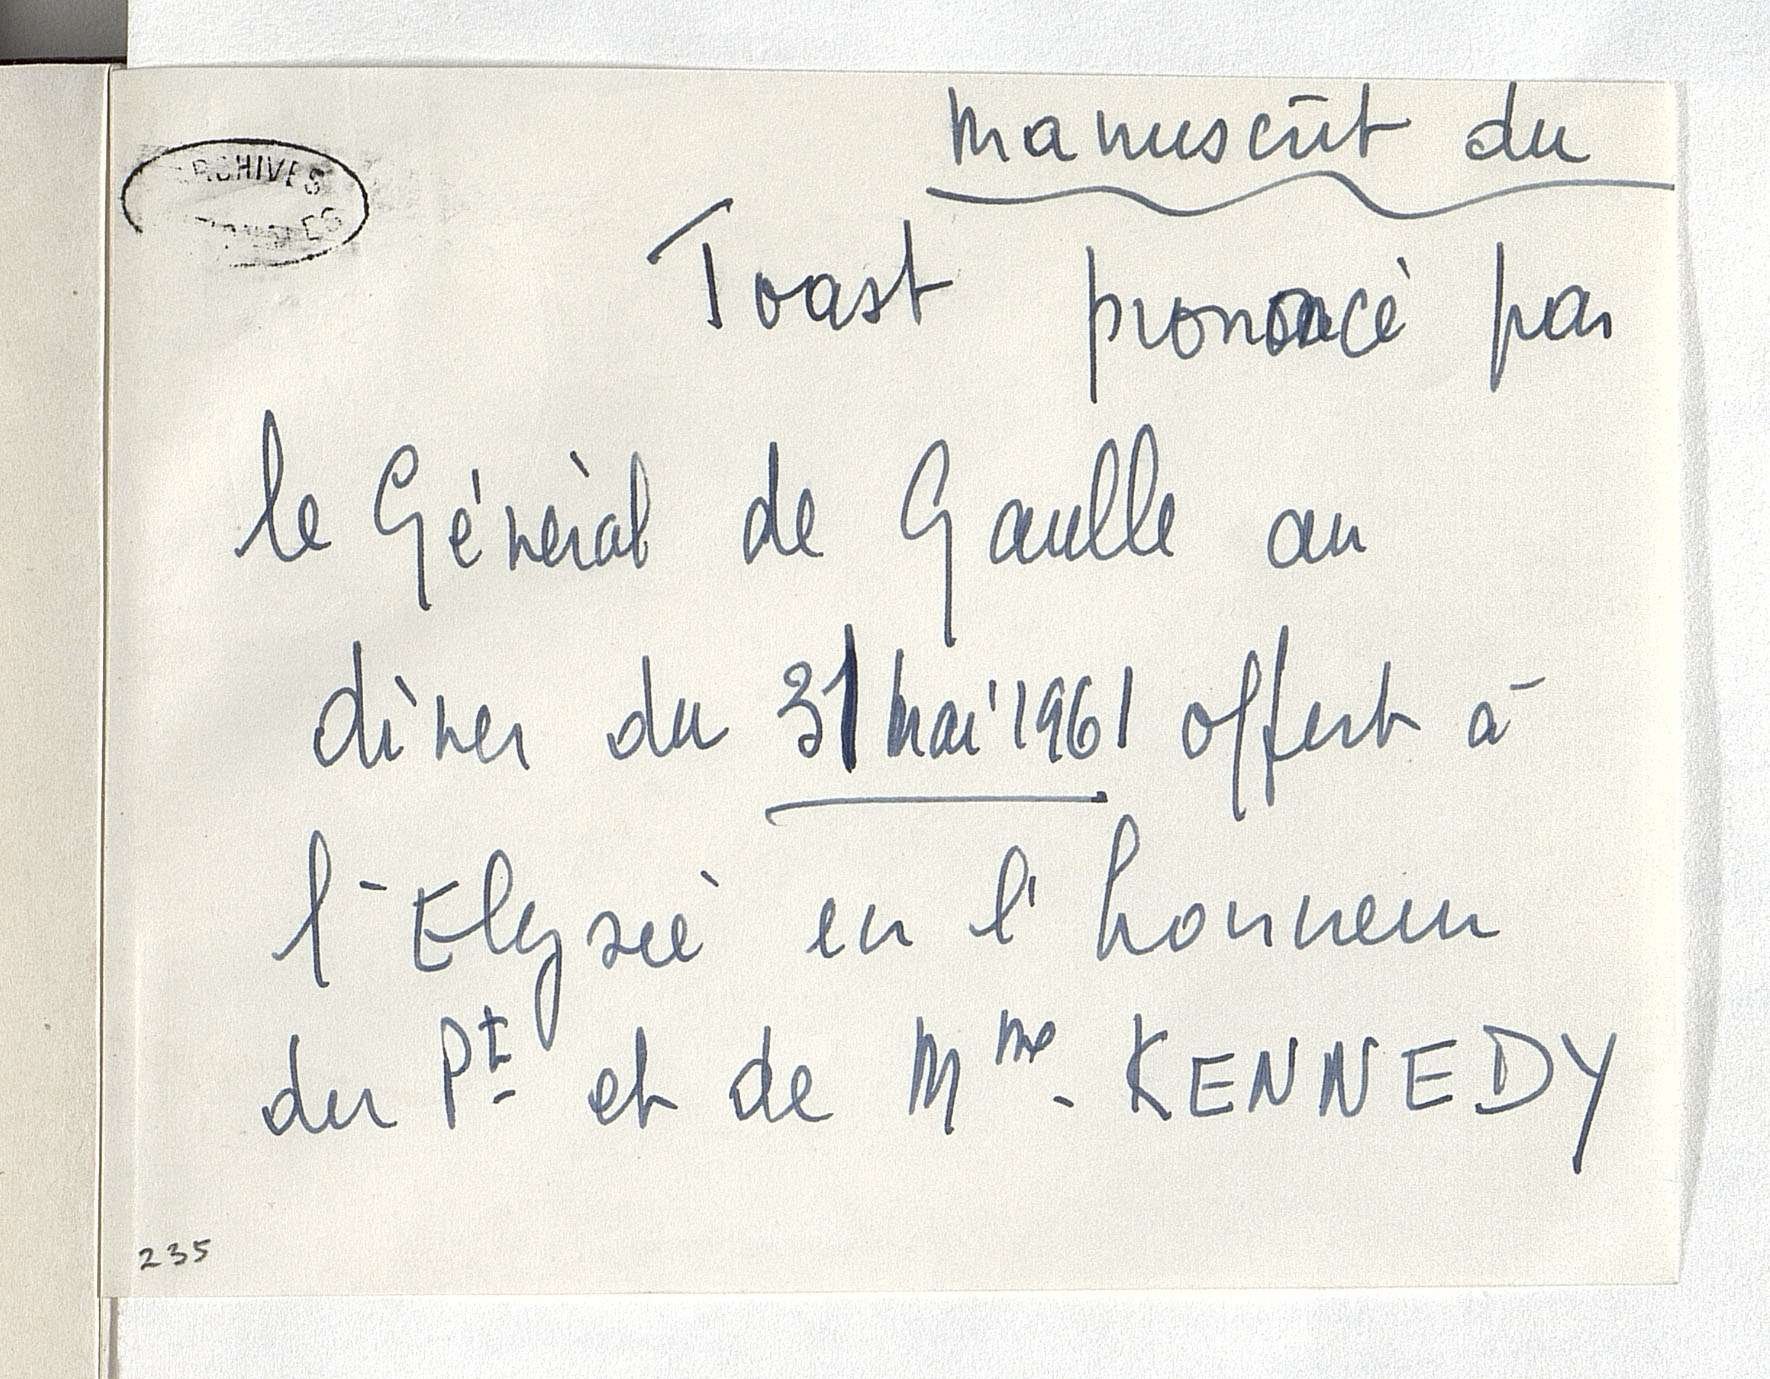 manuscrit du
ARCHIVES
Toast prononcé par
le Général de Gaulle au
dîner du 31 mai 1961 offert à
l'Elysée en l'honneur
du Pt. et de Mme. KENNEDY
235